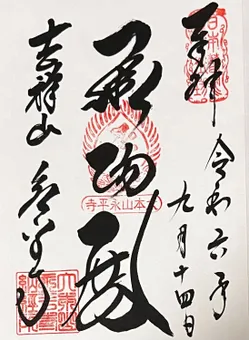 奉拝
令和六年
九月十四日
承陽殿
大本山永平寺
吉祥山
永平寺